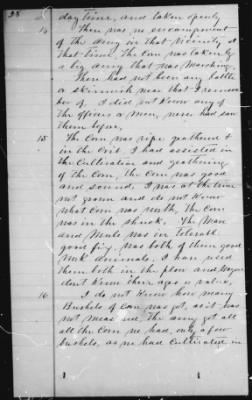 38
day time, and taken openly
14 There was no encampment
of the army in that vicinity at
that time, The Corn was taken by
a big army that was Marching.
There had not been any battle
or skirmish near that I remem
ber of. I did not know any of
the officers or men, never had seen
them before.
15 The Corn was ripe gathered &
in the Crib. I had assisted in
the Cultivation and gathering
of the Corn, the Corn was good
and sound, I was at the time
not grown and do not know
what Corn was worth, The Corn
was in the shuck. The Mare
and Mule was in Tolerable
good fix, was both of them good
work animals, I have used
them both in the plow and Wagon
don't know their ages or value,
16 I do not know how many
Bushels of Corn was got, as it was
not measured, The army got all
all the Corn we had, only a few
bushels, as we had Cultivated in